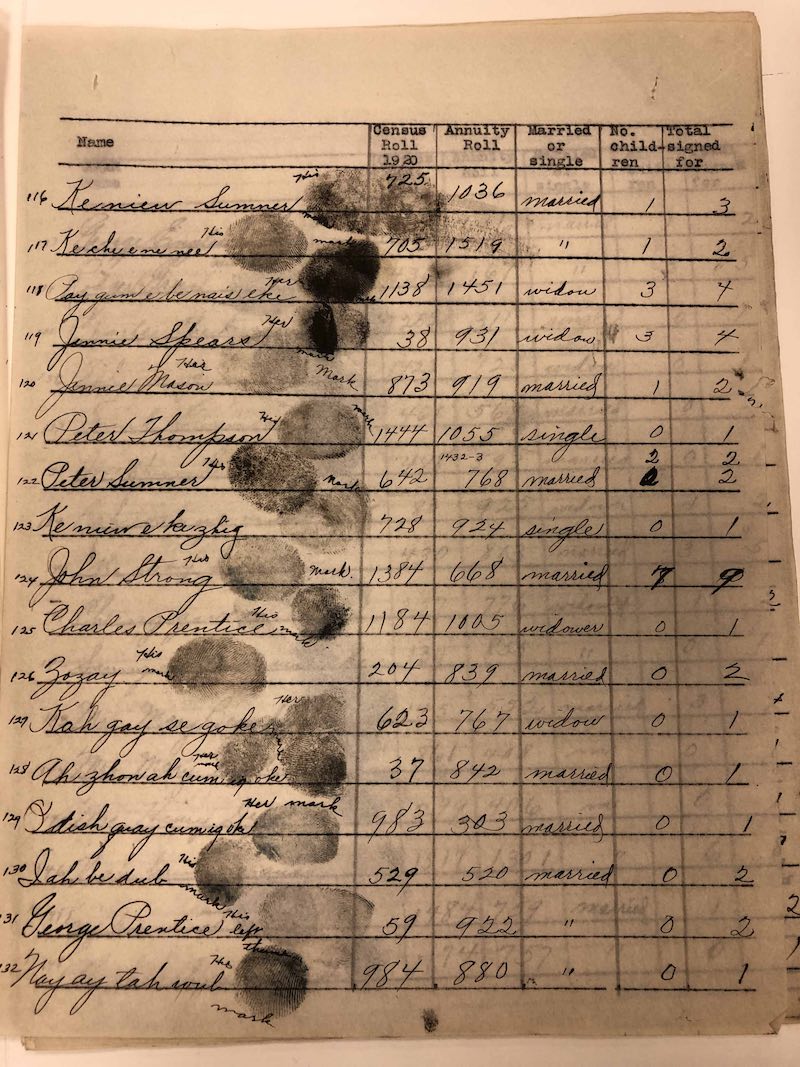 Name Census Roll 1920 Annuity Roll Married or single No. child-ren Total signed for
116 Keniew Sumner His mark 725 1036 married 1 3
117 Ke che ene nee His mark 705 1519 " 1 2
118 Pay gum e be nais eke Her mark 1138 1451 widow 3 4
119 Jennie Spears Her mark 38 931 widow 3 4
120 Jennie Mason Her Mark 873 919 married 1 2
121 Peter Thompson His mark 1444 1055 single 0 1
1432-3 2 2
122 Peter Sumner His Mark 642 768 married 2
123 Ke niew e ke zhig 728 924 single 0 1
124 John Strong His mark. 1384 668 married 7 9
125 Charles Prentice His mark. 1184 1005 widower 0 1
126 Zozay His mark 204 839 married 0 2
127 Kah gay se goke Her 623 767 widow 0 1
128 Ah zhon ah cum ig oke Her mark 37 842 married 0 1
129 cumigoke Her mark 983 303 married 0 1
130 Iah be dub His mark 529 520 married 0 2
131 George Prentice His left thumb 59 922 " 0 2
132 Nay ay tah wub His mark 984 880 " 0 1